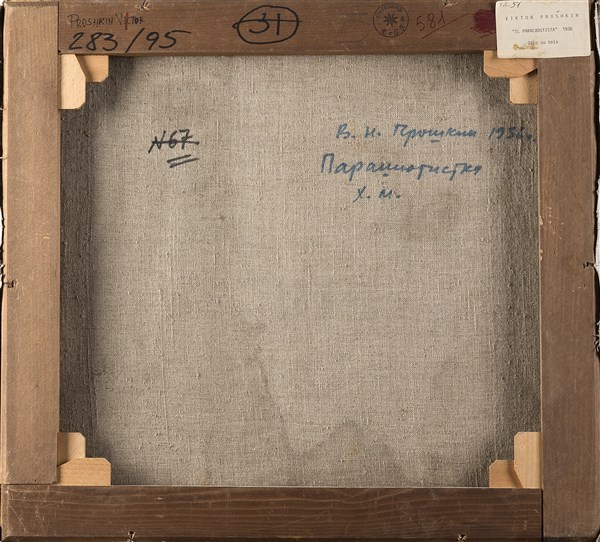 PROSHKIN VIKTOR
283/95
31
581
VIKTOR PROSHKIN
"IL PARACADUTISTA" 1936
Olio su tela
N67
В. Н. Прошкин
Парашютистка
Х. М.